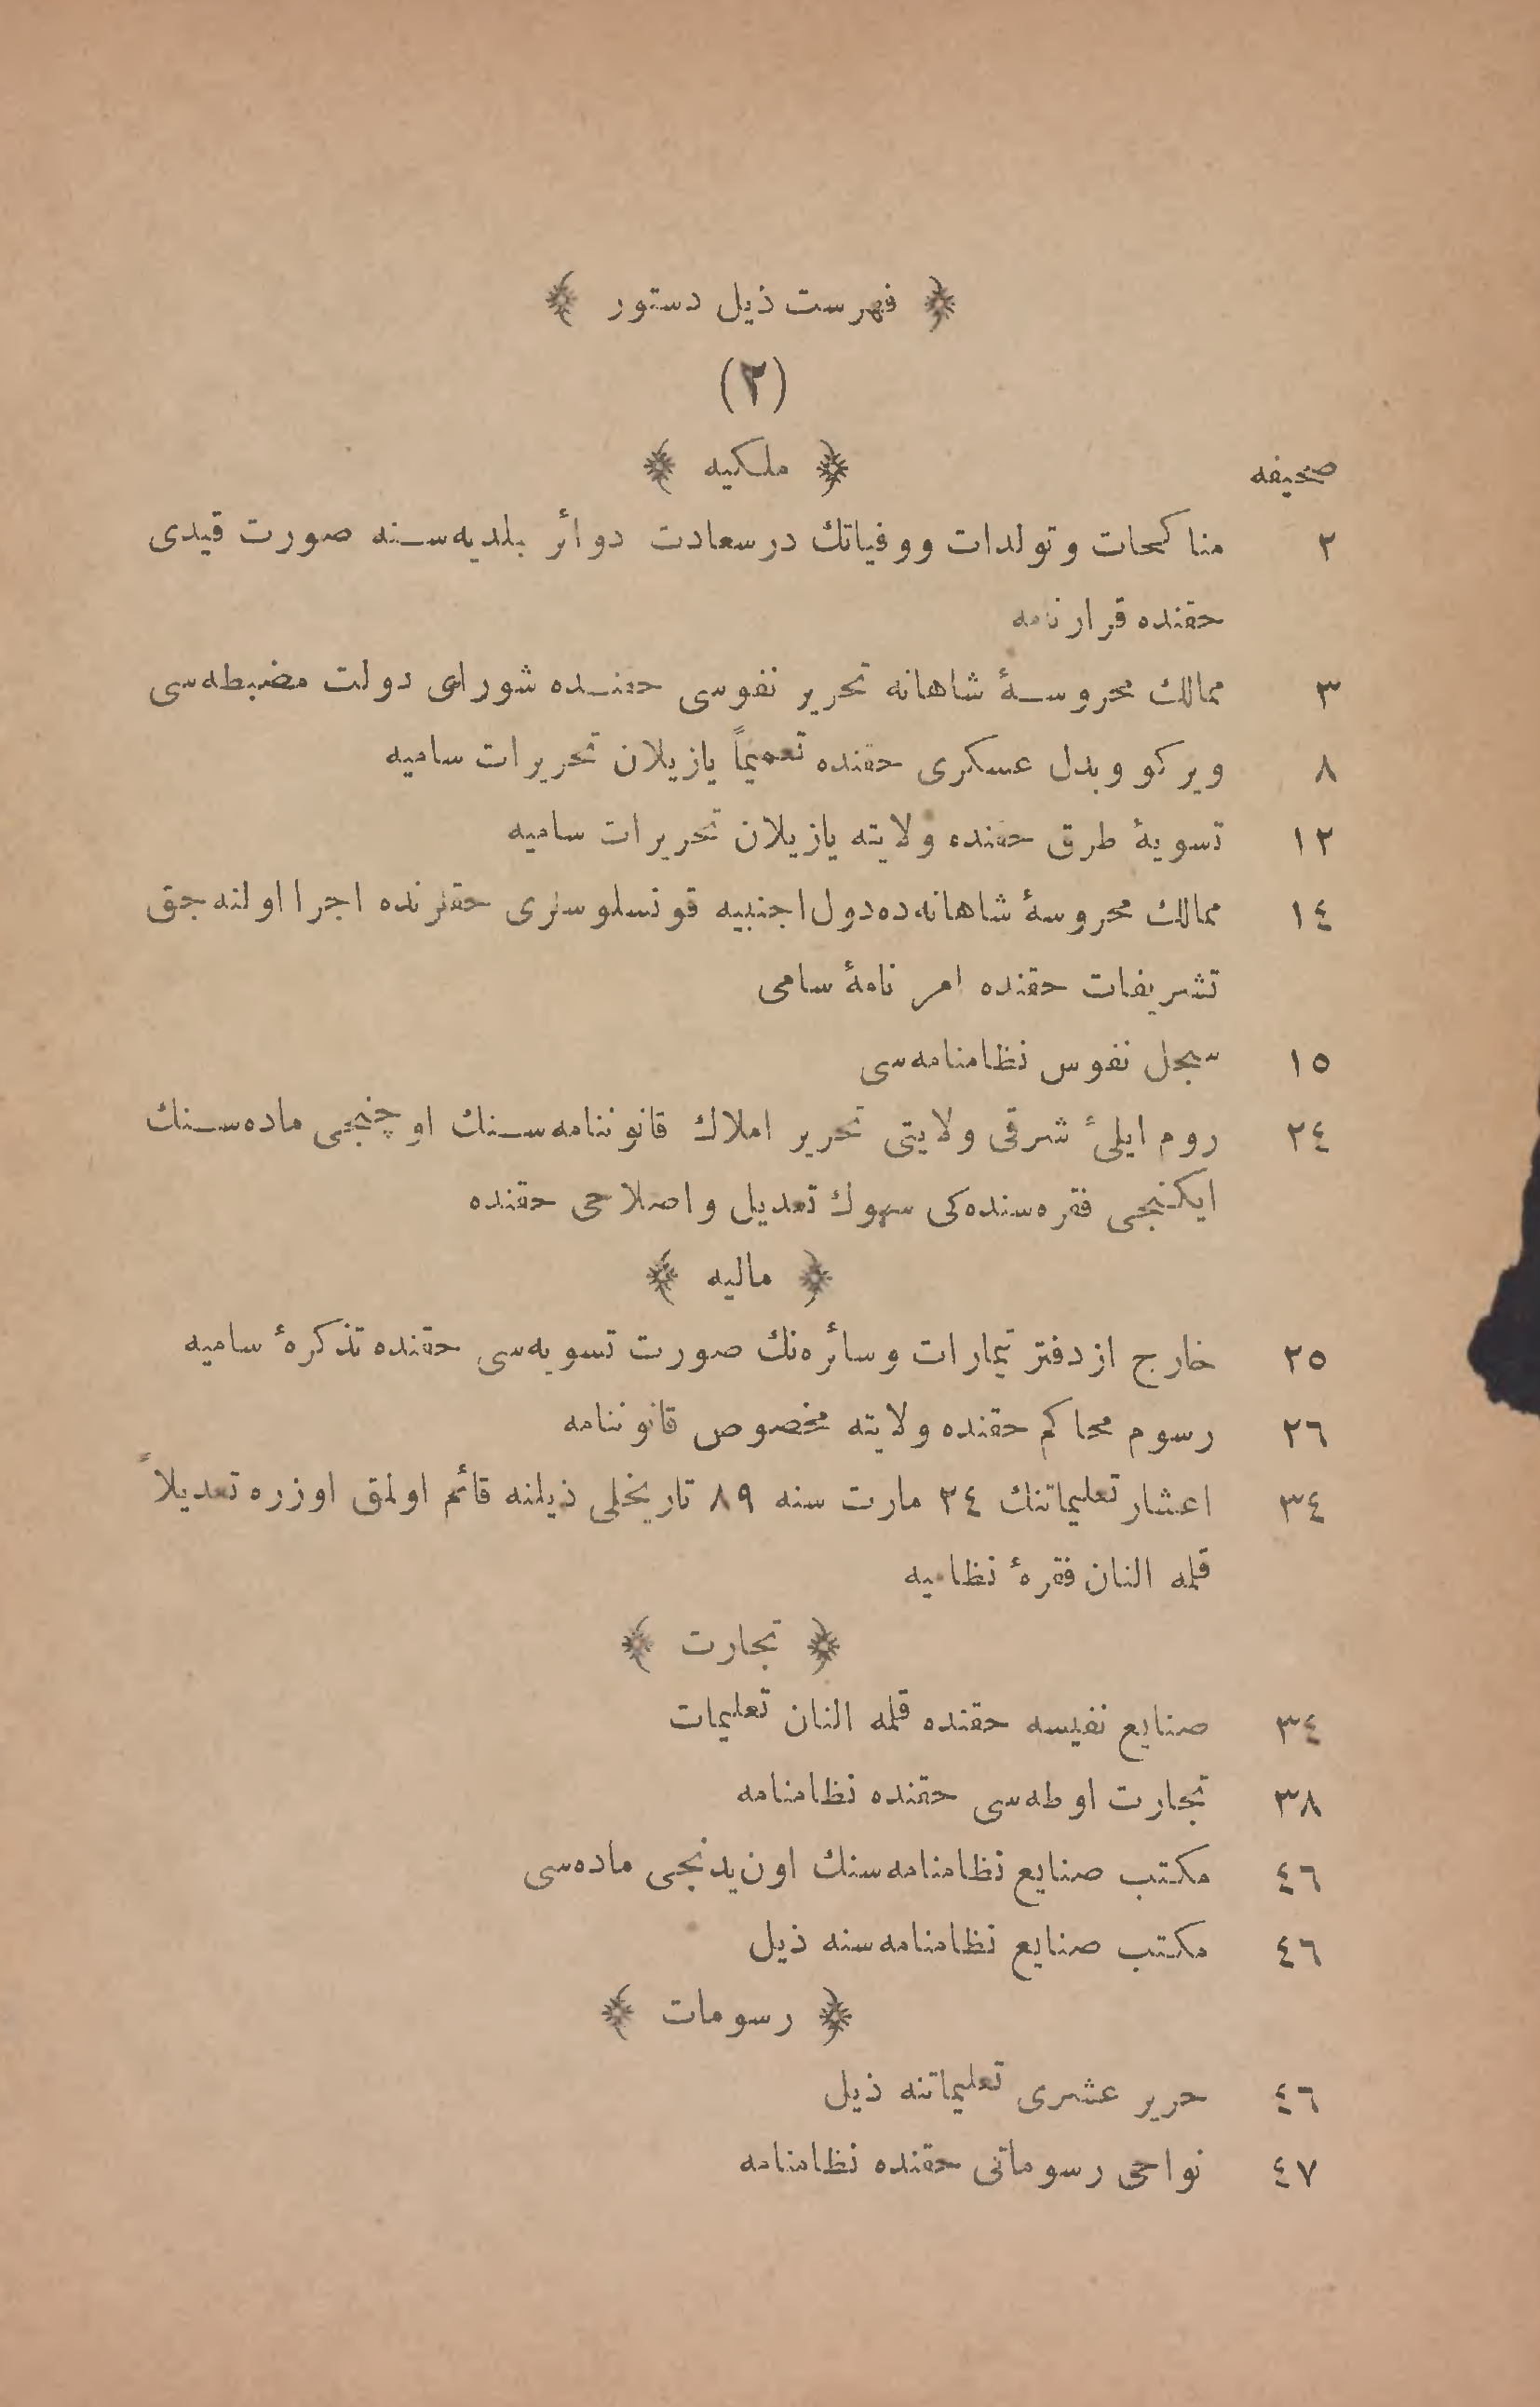 ﴿ فهرست ذیل دستور ﴾
(٢)
﴿ ملكیه ﴾
صحیفه
٢ مناكحات و تولدات و وفیاتك درسعادت دوائر بلدیه‌سنه صورت قیدی
حقنده قرارنامه
٣ ممالك محروسۀ شاهانه تحریر نفوسی حقنده شورای دولت مضبطه‌سی
٨ ویركو و بدل عسكری حقنده تعمیماً یازیلان تحریرات سامیه
١٢ تسویۀ طرق حقنده ولایته یازیلان تحریرات سامیه
١٤ ممالك محروسۀ شاهانه‌ده دول اجنبیه قونسلوسلری حقلرنده اجرا اولنه‌جق
تشریفات حقنده امر نامۀ سامی
١٥ سجل نفوس نظامنامه‌سی
٢٤ روم ایلیٔ شرقی ولایتی تحریر املاك قانوننامه‌سنك اوچنجی ماده‌سنك
ایكنجی فقره‌سنده‌كی سهوك تعدیل و اصلاحی حقنده
﴿ مالیه ﴾
٢٥ خارج از دفتر تیمارات و سائره‌نك صورت تسویه‌سی حقنده تذكرۀ سامیه
٢٦ رسوم محاكم حقنده ولایته مخصوص قانوننامه
٣٤ اعشار تعلیماتنك ٢٤ مارت سنه ٨٩ تاریخلی ذیلنه قائم اولمق اوزره تعدیلاً
قلمه النان فقرۀ نظامیه
﴿ تجارت ﴾
٣٤ صنایع نفیسه حقنده قلمه النان تعلیمات
٣٨ تجارت اوطه‌سی حقنده نظامنامه
٤٦ مكتب صنایع نظامنامه‌سنك اون‌یدنجی ماده‌سی
٤٦ مكتب صنایع نظامنامه‌سنه ذیل
﴿ رسومات ﴾
٤٦ حریر عشری تعلیماتنه ذیل
٤٧ نواحی رسوماتی حقنده نظامنامه